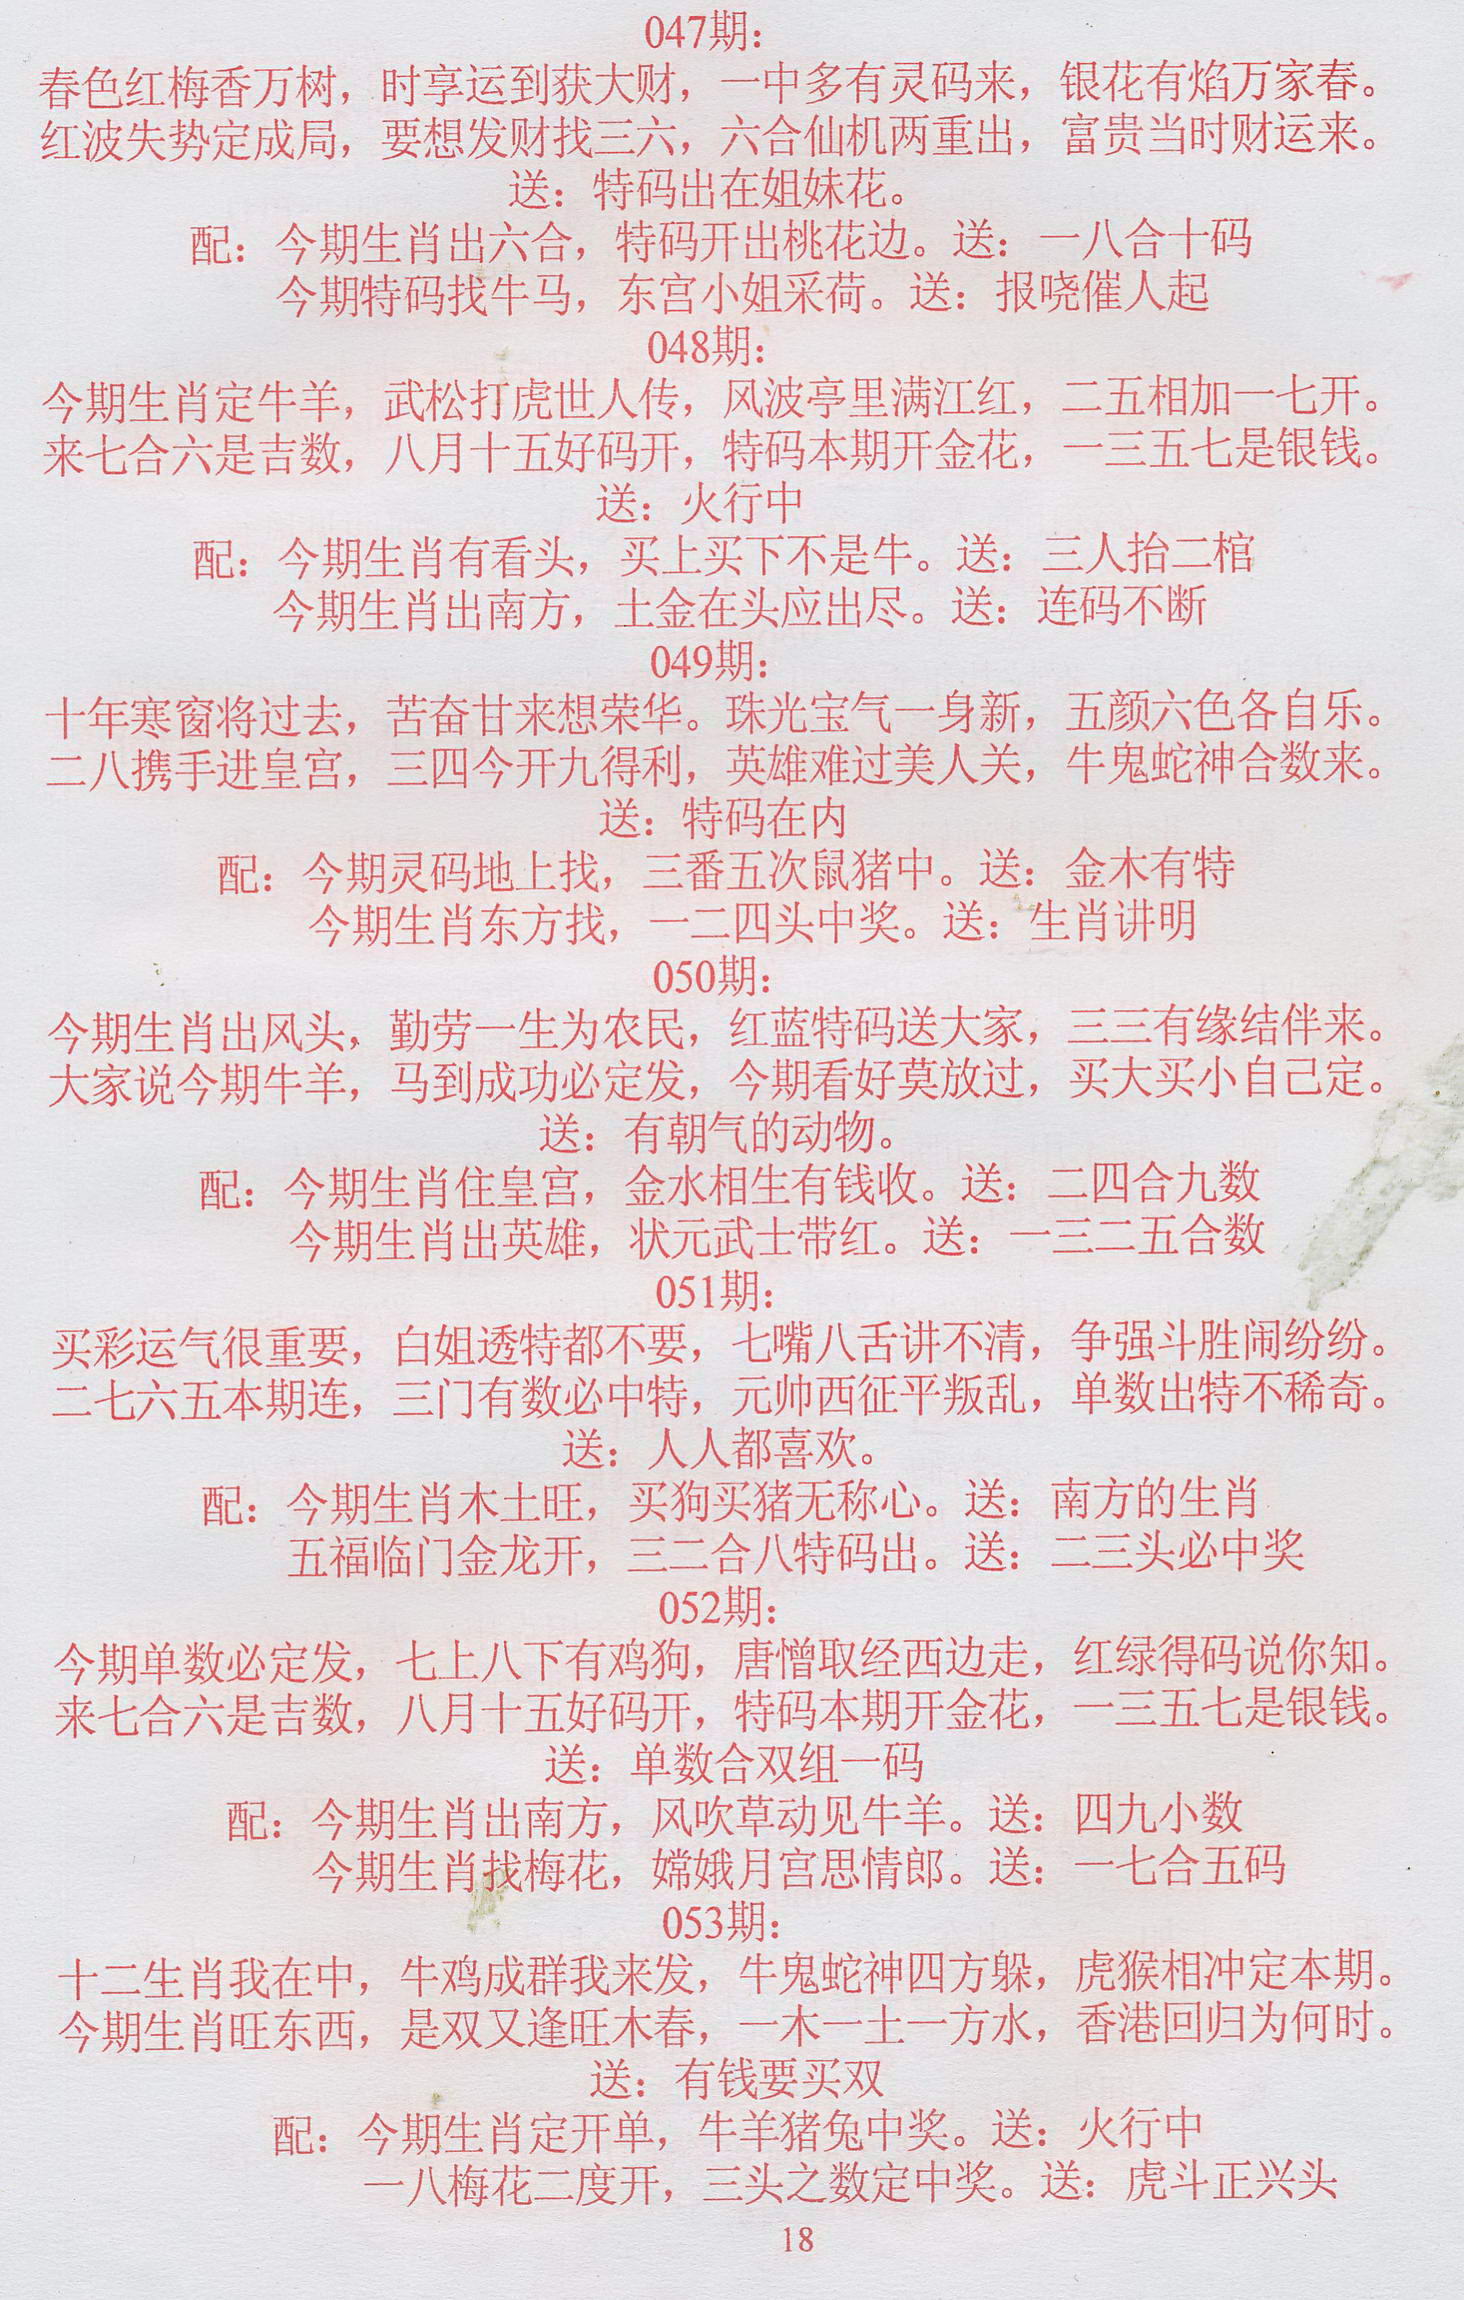 047期：
春色红梅香万树，时享运到获大财，一中多有灵码来，银花有焰万家春。
红波失势定成局，要想发财找三六，六合仙机两重出，富贵当时财运来。
送：特码出在姐妹花。
配：今期生肖出六合，特码开出桃花边。送：一八合十码
今期特码找牛马，东宫小姐采荷。送：报哓催人起
048期：
今期生肖定牛羊，武松打虎世人传，风波亭里满江红，二五相加一七开。
来七合六是吉数，八月十五好码开，特码本期开金花，一三五七是银钱。
送：火行中
配：今期生肖有看头，买上买下不是牛。送：三人抬二棺
今期生肖出南方，土金在头应出尽。送：连码不断
049期：
十年寒窗将过去，苦奋甘来想荣华。珠光宝气一身新，五颜六色各自乐。
二八携手进皇宫，三四今开九得利，英雄难过美人关，牛鬼蛇神合数来。
送：特码在内
配：今期灵码地上找，三番五次鼠猪中。送：金木有特
今期生肖东方找，一二四头中奖。送：生肖讲明
050期：
今期生肖出风头，勤劳一生为农民，红蓝特码送大家，三三有缘结伴来。
大家说今期牛羊，马到成功必定发，今期看好莫放过，买大买小自己定。
送：有朝气的动物。
配：今期生肖住皇宫，金水相生有钱收。送：二四合九数
今期生肖出英雄，状元武士带红。送：一三二五合数
051期：
买彩运气很重要，白姐透特都不要，七嘴八舌讲不清，争强斗胜闹纷纷。
二七六五本期连，三门有数必中特，元帅西征平叛乱，单数出特不稀奇。
送：人人都喜欢。
配：今期生肖木土旺，买狗买猪无称心。送：南方的生肖
五福临门金龙开，三二合八特码出。送：二三头必中奖
052期：
今期单数必定发，七上八下有鸡狗，唐憎取经西边走，红绿得码说你知。
来七合六是吉数，八月十五好码开，特码本期开金花，一三五七是银钱。
送：单数合双组一码
配：今期生肖出南方，风吹草动见牛羊。送：四九小数
今期生肖找梅花，嫦娥月宫思情郎。送：一七合五码
053期：
十二生肖我在中，牛鸡成群我来发，牛鬼蛇神四方躲，虎猴相冲定本期。
今期生肖旺东西，是双又逢旺木春，一木一士一方水，香港回归为何时。
送：有钱要买双
配：今期生肖定开单，牛羊猪兔中奖。送：火行中
一八梅花二度开，三头之数定中奖。送：虎斗正兴头
18